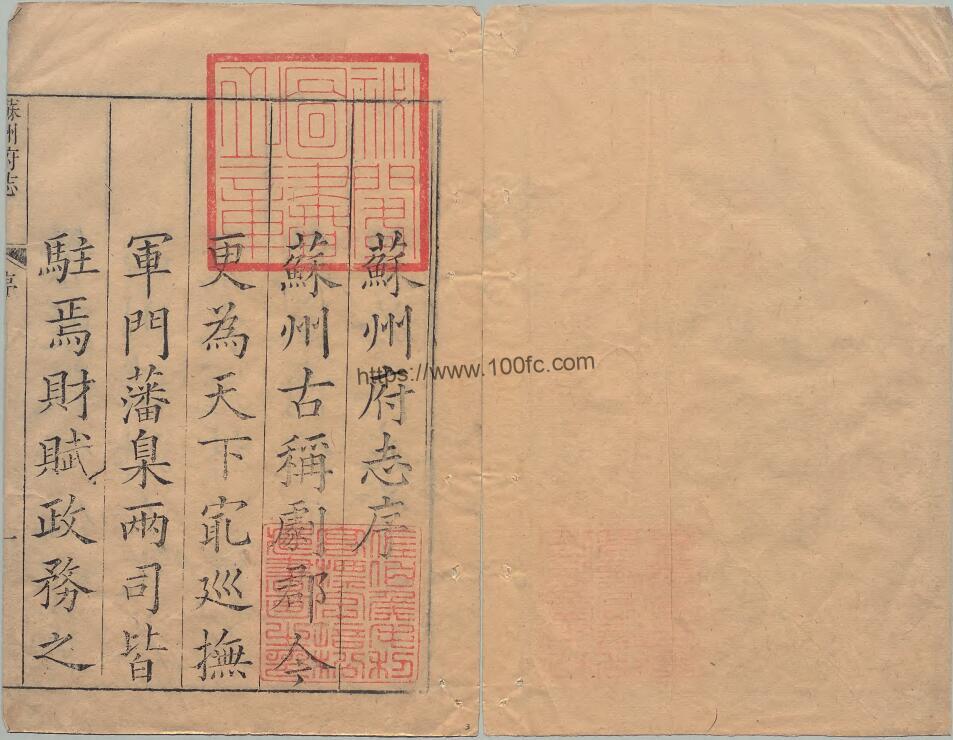 蘇州府志序
蘇州古稱劇郡今
更為天下㝡巡撫
軍門藩臬兩司皆
駐焉財賦政務之
蘇州府志 序 一
秘閣
圖書
之章
https://www.100fc.com
3